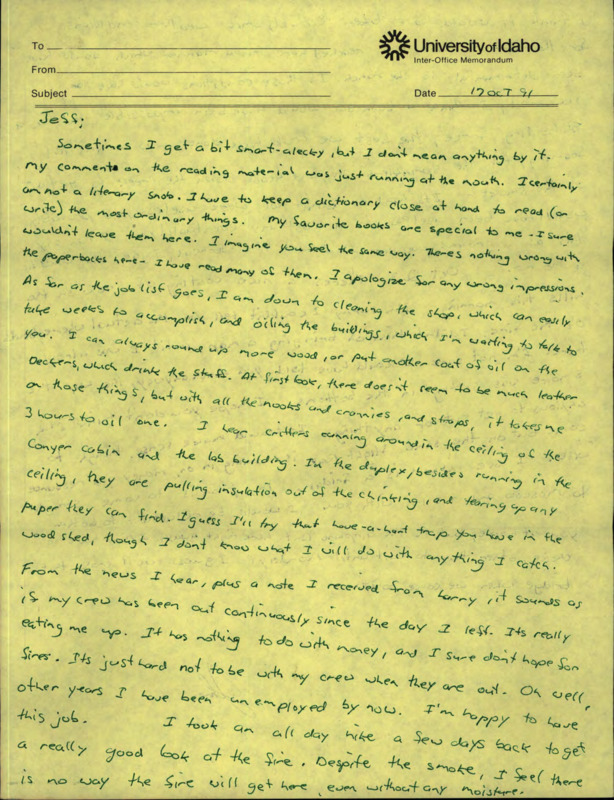 To
University of Idaho
Inter-Office Memorandum
From
Subject
Date 17 OCT 91
Jess;
Sometimes I get a bit smart-alecky, but I don't mean anything by it.
My comments on the reading material was just running at the mouth. I certainly
am not a literary snob. I have to keep a dictionary close at hand to read (or
write) the most ordinary things. My favorite books are special to me - I sure
wouldn't leave them here. I imagine you feel the same way. Theres nothing wrong with
the paperbacks here - I have read many of them. I apologize for any wrong impressions.
As far as the job list goes, I am down to cleaning the shop, which can easily
take weeks to accomplish, and oiling the buildings, which I'm waiting to talk to
you. I can always round up more wood, or put another coat of oil on the
Deckers, which drink the stuff. At first look, there doesn't seem to be much leather
on those things, but with all the nooks and crannies, and straps, it takes me
3 hours to oil one. I hear critters running around in the ceiling of the
Conyer cabin and the lab building. In the duplex, besides running in the
ceiling, they are pulling insulation out of the chinking, and tearing up any
paper they can find. I guess I'll try that have-a-hart trap you have in the
wood shed, though I don't know what I will do with anything I catch.
From the news I hear, plus a note I received from Larry, it sounds as
if my crew has been out continuously since the day I left. Its really
eating me up. It has nothing to do with money, and I sure don't hope for
fires. Its just hard not to be with my crew when they are out. Oh well,
other years I have been unemployed by now. I'm happy to have
this job. I took an all day hike a few days back to get
a really good look at the fire. Despite the smoke, I feel there
is no way the fire will get here, even without any moisture.